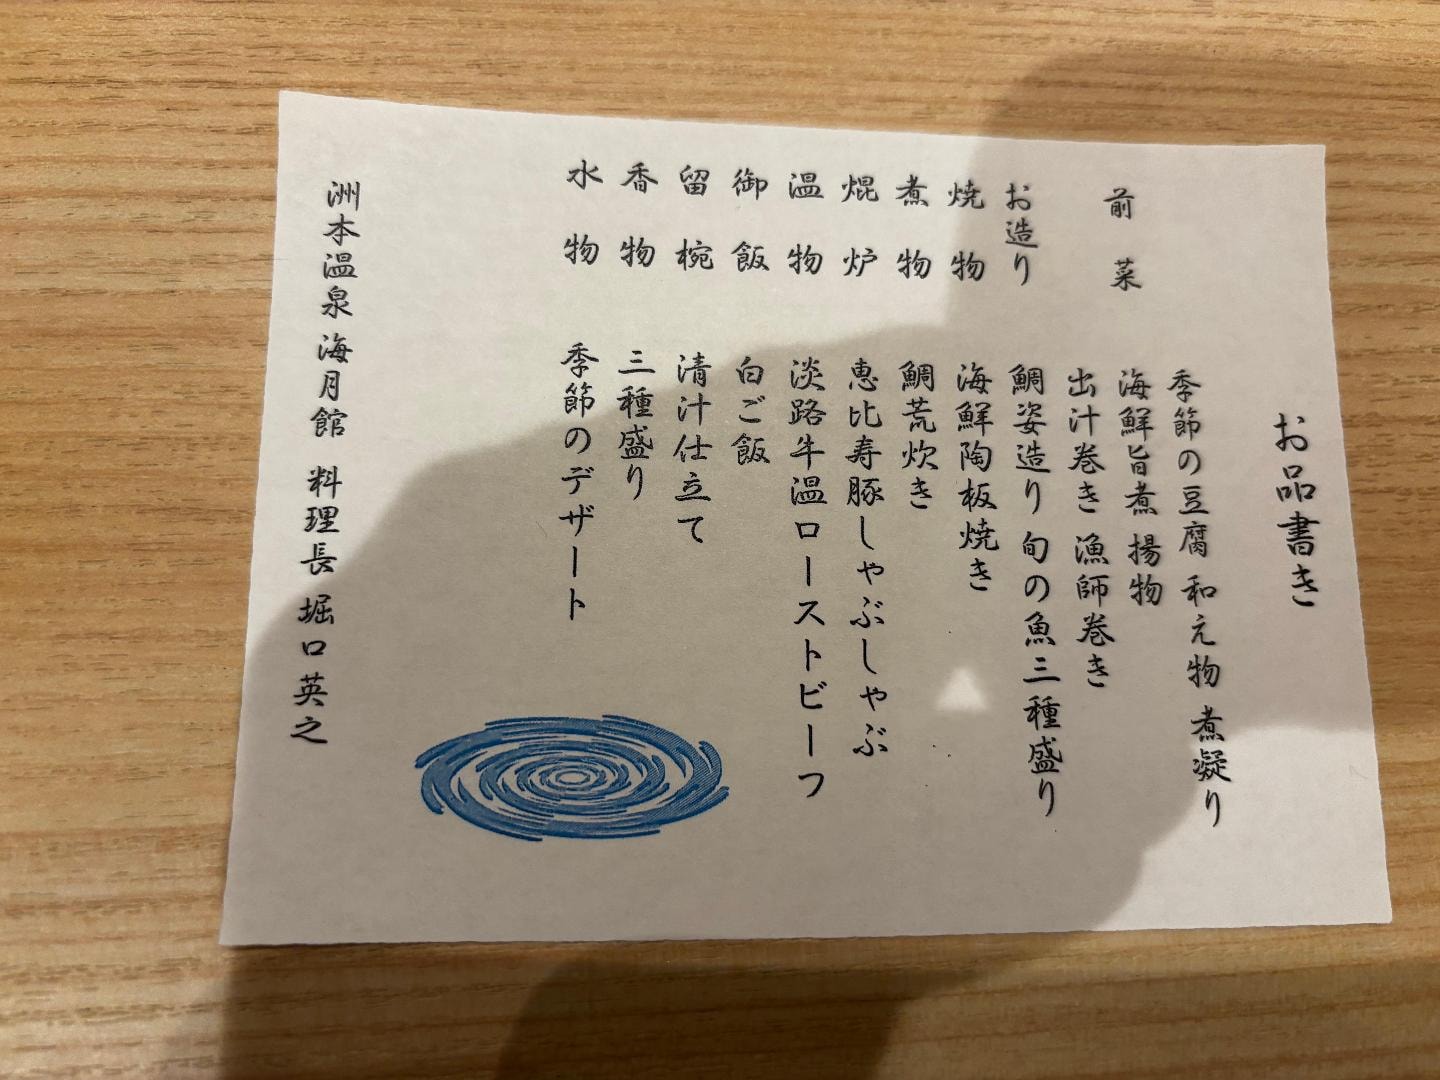 お品書き
前菜 季節の豆腐 和え物 煮凝り
海鮮旨煮 揚物
出汁巻き 漁師巻き
お造り 鯛姿造り 旬の魚三種盛り
焼物 海鮮陶板焼き
煮物 鯛荒炊き
焜炉 恵比寿豚しゃぶしゃぶ
温物 淡路牛温ローストビーフ
御飯 白ご飯
留椀 清汁仕立て
香物 三種盛り
水物 季節のデザート
洲本温泉 海月館 料理長 堀口英之